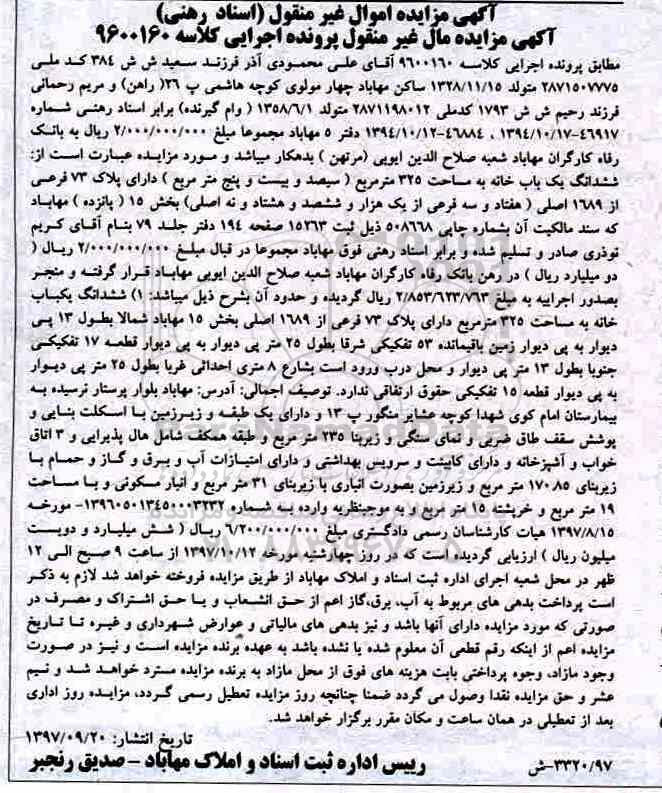 آگهی مزایده اموال غیر منقول (اسناد رهنی)
آگهی مزایده مال غیر منقول پرونده اجرایی کلاسه ۹۶۰۰۱۶۰
مطابق پرونده اجرایی کلاسه ۹۶۰۰۱۶۰ آقای علی محمودی آذر فرزند سعید ش ش ۳۸۴ کد ملی
۲۸۷۱۵۰۷۷۷۵ متولد ۱۳۲۸/۱۱/۱۵ ساکن مهاباد چهار مولوی کوچه هاشمی پ ۲۶( راهن) و مریم رحمانی
فرزند رحیم ش ش ۱۷۹۳ کدملی ۲۸۷۱۱۹۸۰۱۲ متولد ۱۳۵۸/۶/۱ ( وام گیرنده) برابر اسناد رهنی شماره
۴۶۹۱۷-۱۳۹۴/۱۰/۱۷ ، ۴۶۸۸۴-۱۳۹۴/۱۰/۱۲ دفتر ۵ مهاباد مجموعا مبلغ ۲/۰۰۰/۰۰۰/۰۰۰ ریال به بانک
رفاه کارگران مهاباد شعبه صلاح الدین ایوبی (مرتهن ) بدهکار میباشد و مورد مزایده عبارت است از:
ششدانگ یک باب خانه به مساحت ۳۲۵ مترمربع ( سیصد و بیست و پنج متر مربع ) دارای پلاک ۷۳ فرعی
از ۱۶۸۹ اصلی ( هفتاد و سه فرعی از یک هزار و ششصد و هشتاد و نه اصلی) بخش ۱۵ ( پانزده ) مهاباد
که سند مالکیت آن بشماره چاپی ۵۰۸۶۶۸ ذیل ثبت ۱۵۲۶۳ صفحه ۱۹۴ دفتر جلد ۷۹ بنام آقای کریم
نوذری صادر و تسلیم شده و برابر اسناد رهنی فوق مهاباد مجموعا در قبال مبلغ ۲/۰۰۰/۰۰۰/۰۰۰ ریال (
دو میلیارد ریال ) در رهن بانک رفاه کارگران مهاباد شعبه صلاح الدین ایوبی مهاباد قرار گرفته و منجر
بصدور اجراییه به مبلغ ۲/۸۵۳/۶۲۳/۷۶۳ ریال گردیده و حدود آن بشرح ذیل میباشد: ۱) ششدانگ یکباب
خانه به مساحت ۳۲۵ مترمربع دارای پلاک ۷۳ فرعی از ۱۶۸۹ اصلی بخش ۱۵ مهاباد شمالا بطول ۱۳ پی
دیوار به پی دیوار زمین باقیمانده ۵۳ تفکیکی شرقا بطول ۲۵ متر پی دیوار به پی دیوار قطعه ۱۷ تفکیکی
جنوبا بطول ۱۳ متر پی دیوار و محل درب ورود است بشارع ۸ متری احداثی غربا بطول ۲۵ متر پی دیوار
به پی دیوار قطعه ۱۵ تفکیکی حقوق ارتفاقی ندارد. توصیف اجمالی: آدرس: مهاباد بلوار پرستار نرسیده به
بیمارستان امام کوی شهدا کوچه عشایر منگور پ ۱۳ و دارای یک طبقه و زیرزمین با اسکلت بنایی و
پوشش سقف طاق ضربی و نمای سنگی و زیربنا ۲۳۵ متر مربع و طبقه همکف شامل هال پذیرایی و ۳ اتاق
خواب و آشپزخانه و دارای کابینت و سرویس بهداشتی و دارای امتیازات آب و برق و گاز و حمام با
زیربنای ۱۷۰.۸۵ متر مربع و زیرزمین بصورت انباری با زیربنای ۳۱ متر مربع و انبار مسکونی و با مساحت
۱۹ متر مربع و خرپشته ۱۵ متر مربع و به موجبنظریه وارده به شماره ۱۳۹۶۰۵۰۱۳۴۵۰۰۰۳۲۳۲- مورخه
۱۳۹۷/۸/۱۵ هیات کارشناسان رسمی دادگستری مبلغ ۶/۲۰۰/۰۰۰/۰۰۰ ریال ( شش میلیارد و دویست
میلیون ریال ) ارزیابی گردیده است که در روز چهارشنبه مورخه ۱۳۹۷/۱۰/۱۲ از ساعت ۹ صبح الی ۱۲
ظهر در محل شعبه اجرای اداره ثبت اسناد و املاک مهاباد از طریق مزایده فروخته خواهد شد لازم به ذکر
است پرداخت بدهی های مربوط به آب، برق،گاز اعم از حق انشعاب و یا حق اشتراک و مصرف در
صورتی که مورد مزایده دارای آنها باشد و نیز بدهی های مالیاتی و عوارض شهرداری و غیره تا تاریخ
مزایده اعم از اینکه رقم قطعی آن معلوم شده یا نشده باشد به عهده برنده مزایده است و نیز در صورت
وجود مازاد، وجوه پرداختی بابت هزینه های فوق از محل مازاد به برنده مزایده مسترد خواهد شد و نیم
عشر و حق مزایده نقدا وصول می گردد ضمنا چنانچه روز مزایده تعطیل رسمی گردد، مزایده روز اداری
بعد از تعطیلی در همان ساعت و مکان مقرر برگزار خواهد شد.
تاریخ انتشار: ۱۳۹۷/۰۹/۲۰
۳۳۲۰/۹۷-ش رییس اداره ثبت اسناد و املاک مهاباد - صدیق رنجبر